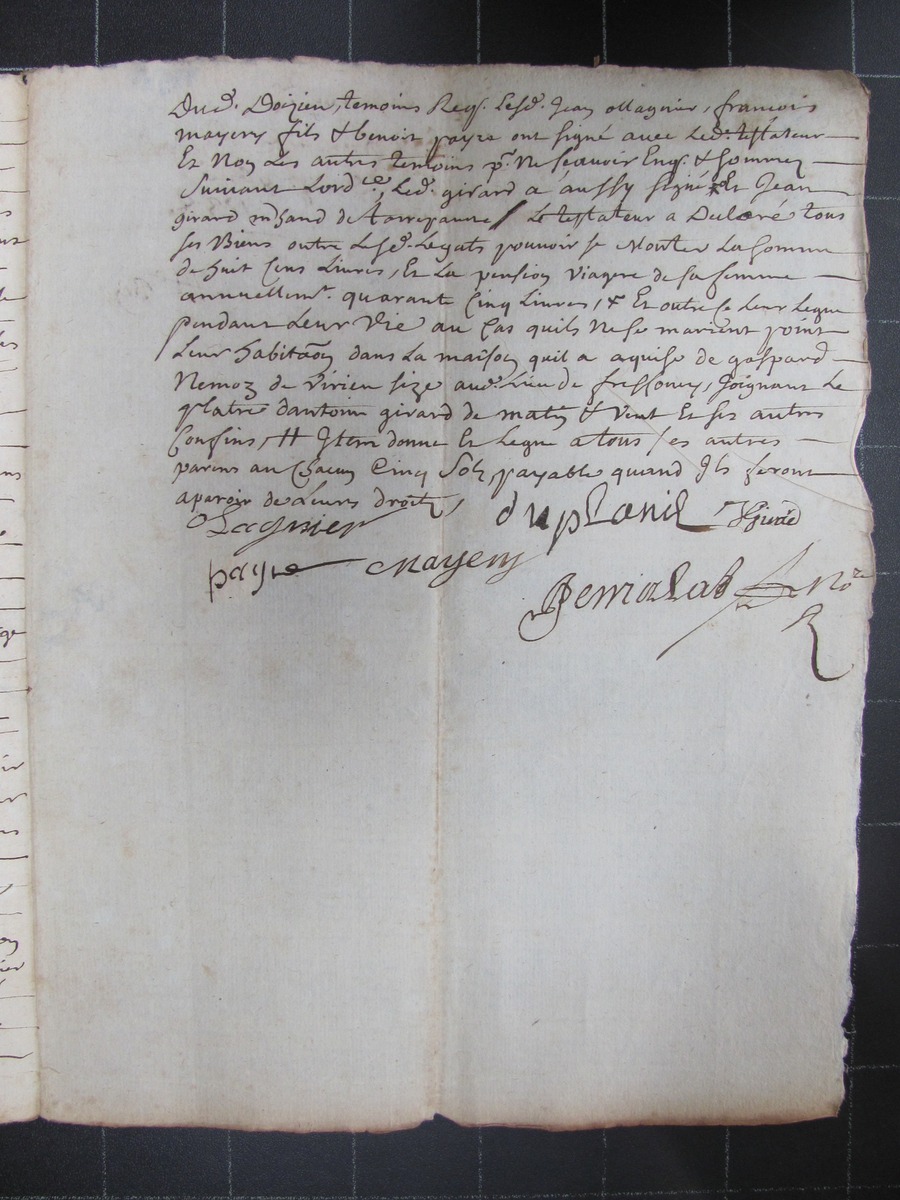 Dud. Doizieu, temoins Req. Lesd. Jean ollagnier, françois
mayery fils & benoit payre ont signé avec Led. testateur
Et Non Les autres temoins pr. Ne sçavoir Enq. & sommez
suivant Lord.ce, Led. girard a aussy signé & Et Jean
girard mchand de farreyanne / Le testateur a Declaré tous
ses Biens outre Lesd. Legats pouvoir se Monter La somme
de huit Cens Livres, Et La pension viagere de sa femme
annuellemt. quarante Cinq Livres, & Et outre ce Leur Legue
pendant Leur Vie au Cas quils Ne se marient point
Leur habitaõn dans La maison quil a aquise de gaspard
Nemoz de Virieu size aud. Lieu de fressoney, Joignant Le
platre dantoine girard de matin & Vent Et ses autres
Confins, # Item donne Et Legue a tous ses autres
parens an Chacun Cinq Solz, payable quand Ils feront
aparoir de Leurs droitz,
Olagnier duplanil JGirard
payre Mayery
Nore